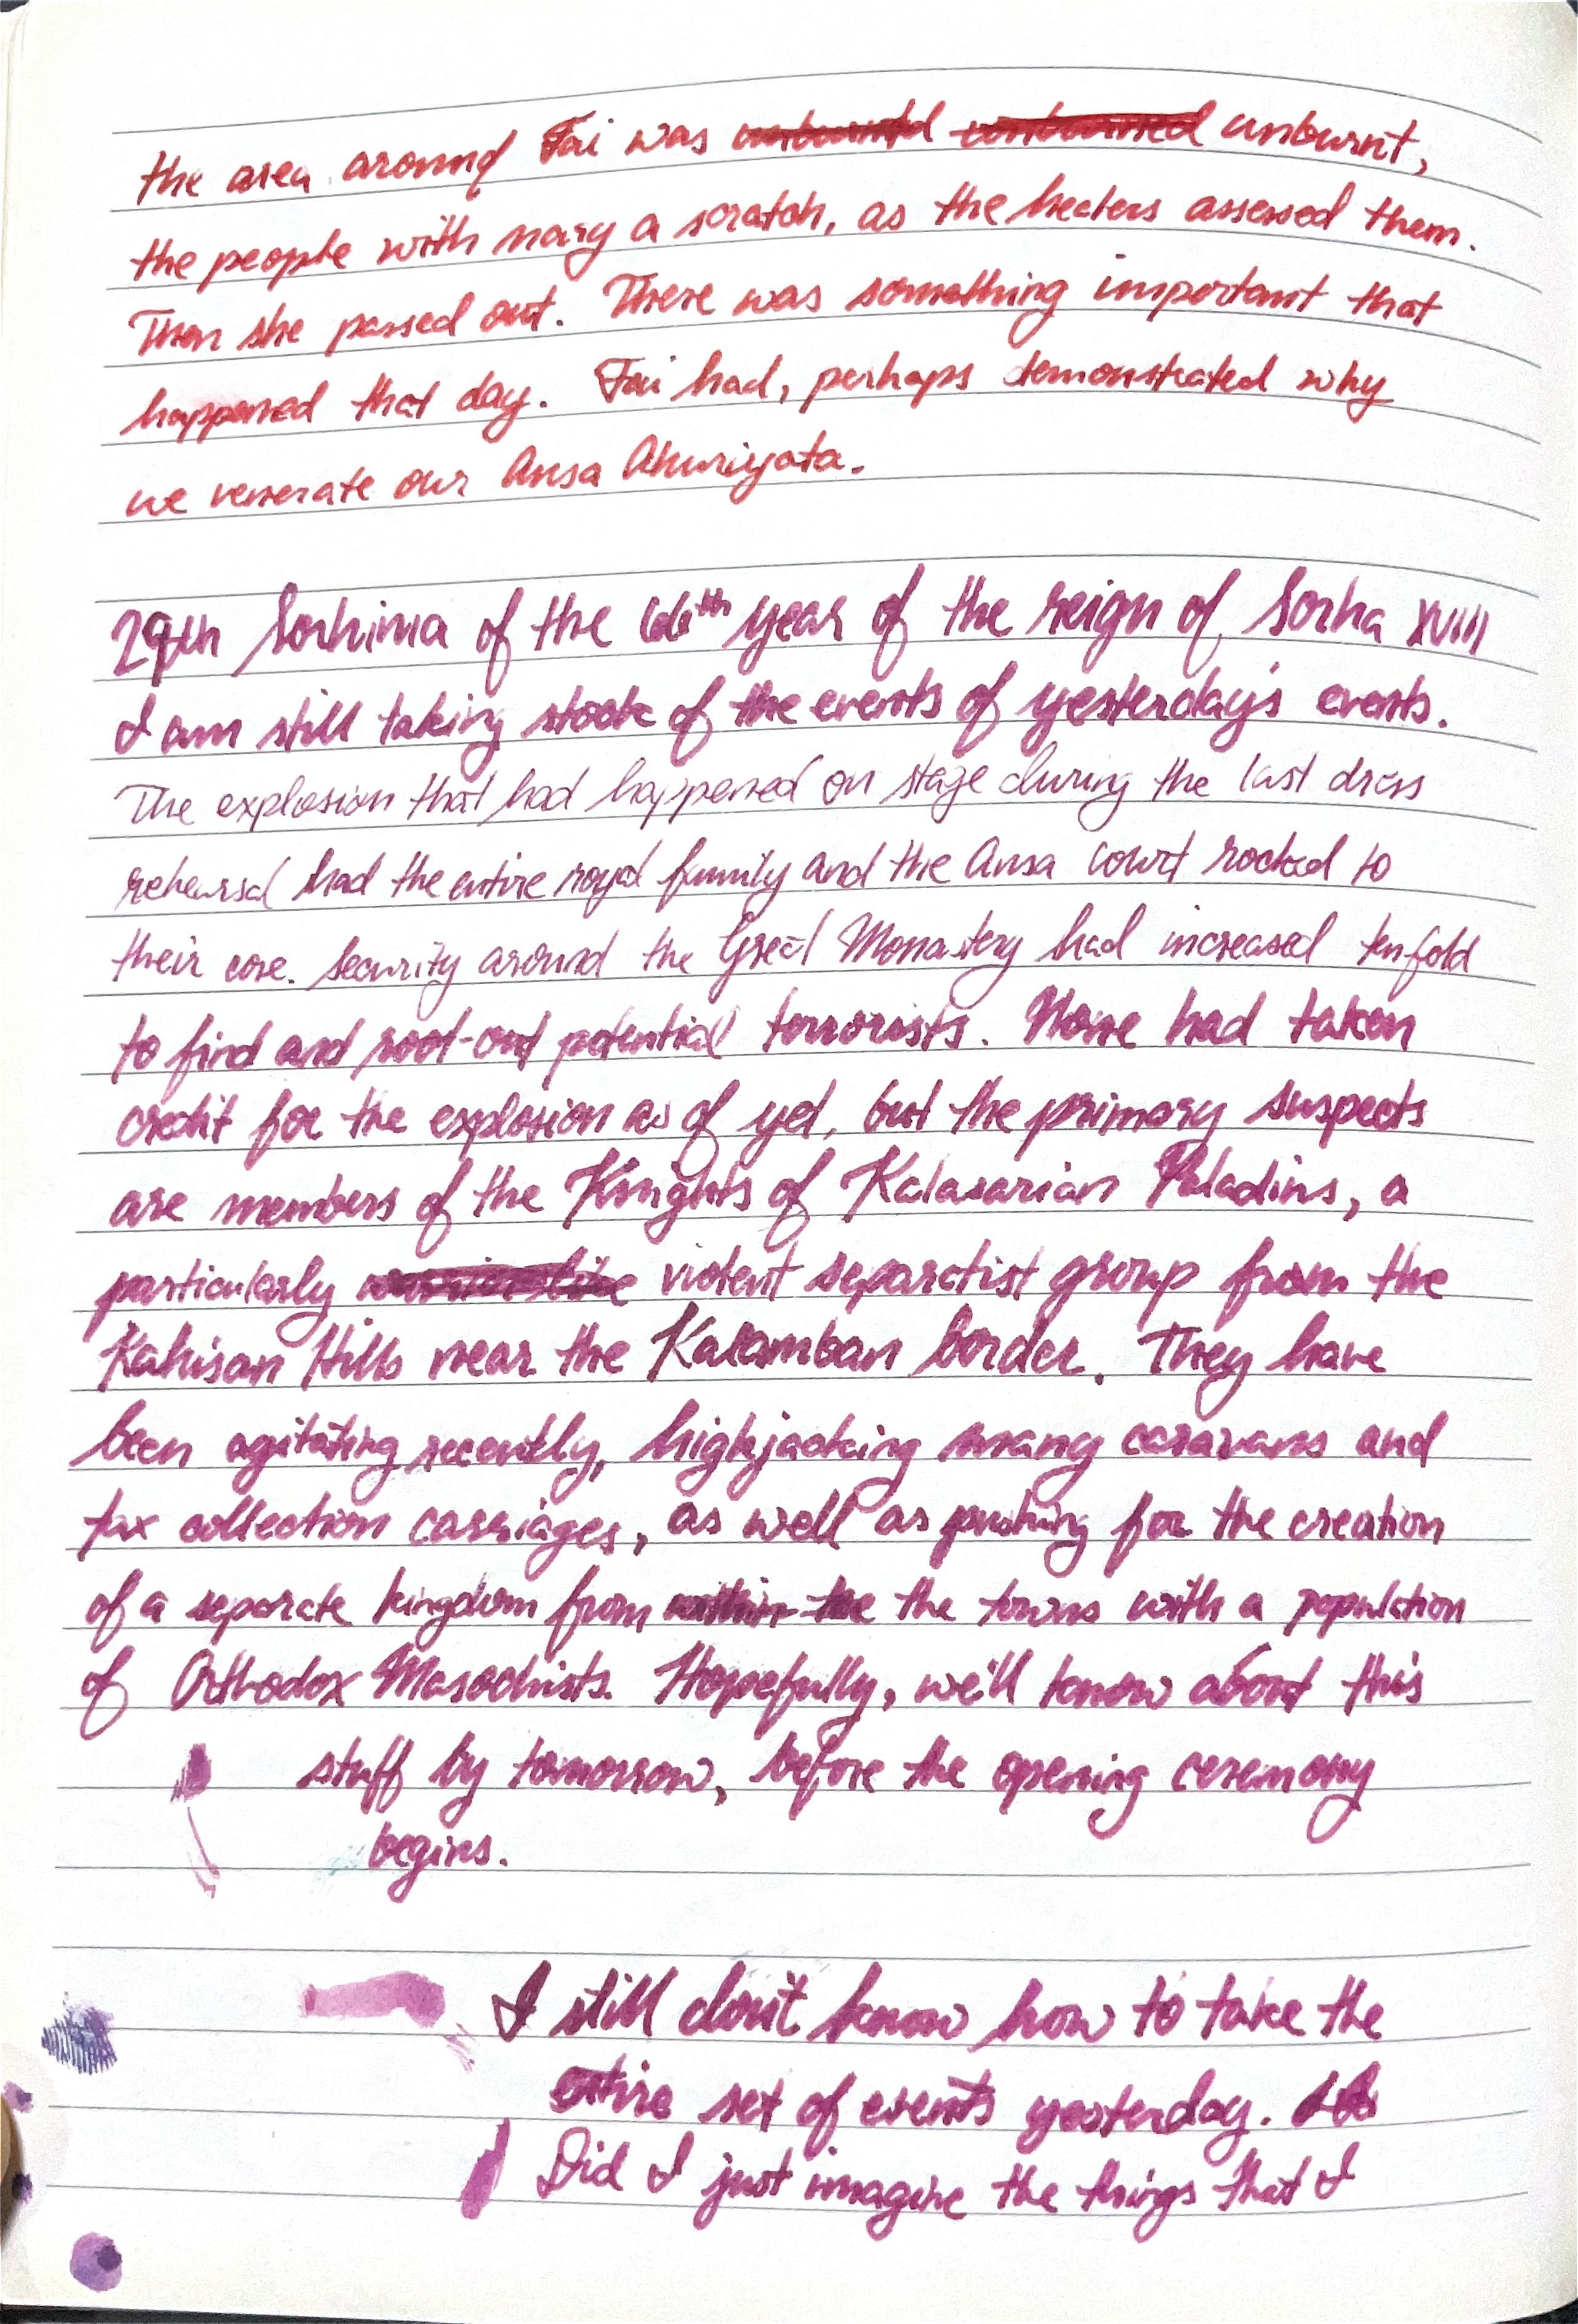 the area around Fai was unburnt,
the people with nary a scratch, as the healers assessed them.
Then she passed out. There was something important that
happened that day. Fai had, perhaps demonstrated why
we venerate our Ansa Ahuriyata.
29th Sorhima of the 66th year of the reign of Sorha XVIII
I am still taking stock of the events of yesterday's events.
The explosion that had happened on stage during the last dress
rehearsal had the entire royal family and the Ansa court rocked to
their core. Security around the Great Monastery had increased tenfold
to find and root-out potential terrorists. None had taken
credit for the explosion as of yet, but the primary suspects
are members of the Knights of Kalasarian Paladins, a
particularly violent separatist group from the
Kahisan Hills near the Kalamban border. They have
been agitating recently, highjacking many caravans and
tax collection carriages, as well as pushing for the creation
of a separate kingdom from the towns with a population
of Orthodox Masochists. Hopefully, we'll know about this
stuff by tomorrow, before the opening ceremony
begins.
I still don't know how to take the
entire set of events yesterday.
Did I just imagine the things that I